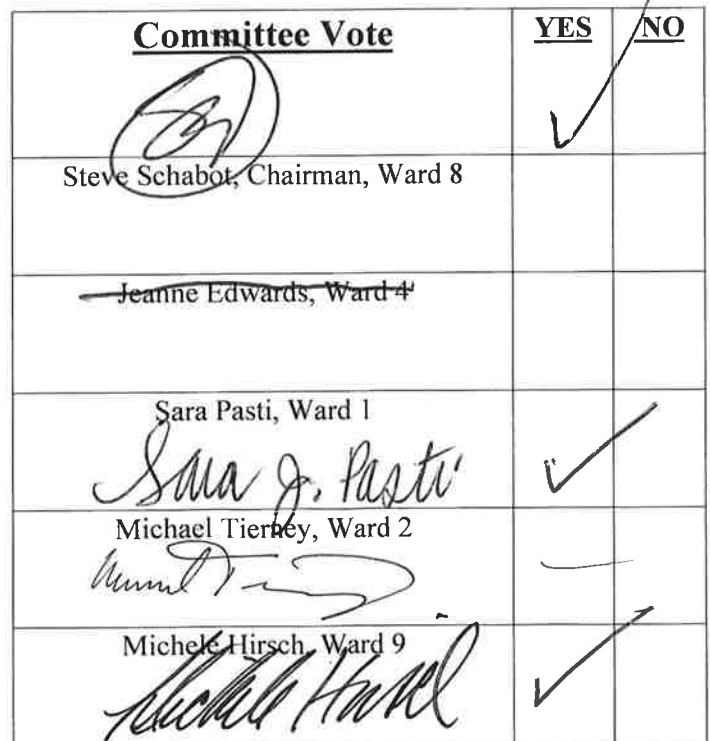 Committee Vote YES NO
✓
Steve Schabot, Chairman, Ward 8
Jeanne Edwards, Ward 4
Sara Pasti, Ward 1
Sara J. Pasti ✓
Michael Tierney, Ward 2
Michele Hirsch, Ward 9
Michele Hirsch ✓